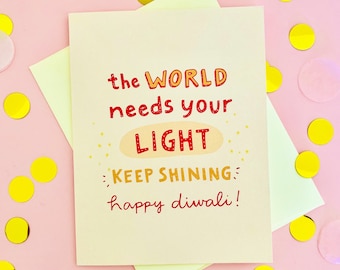 the WORLD
needs your
LIGHT
KEEP SHINING
happy diwali!